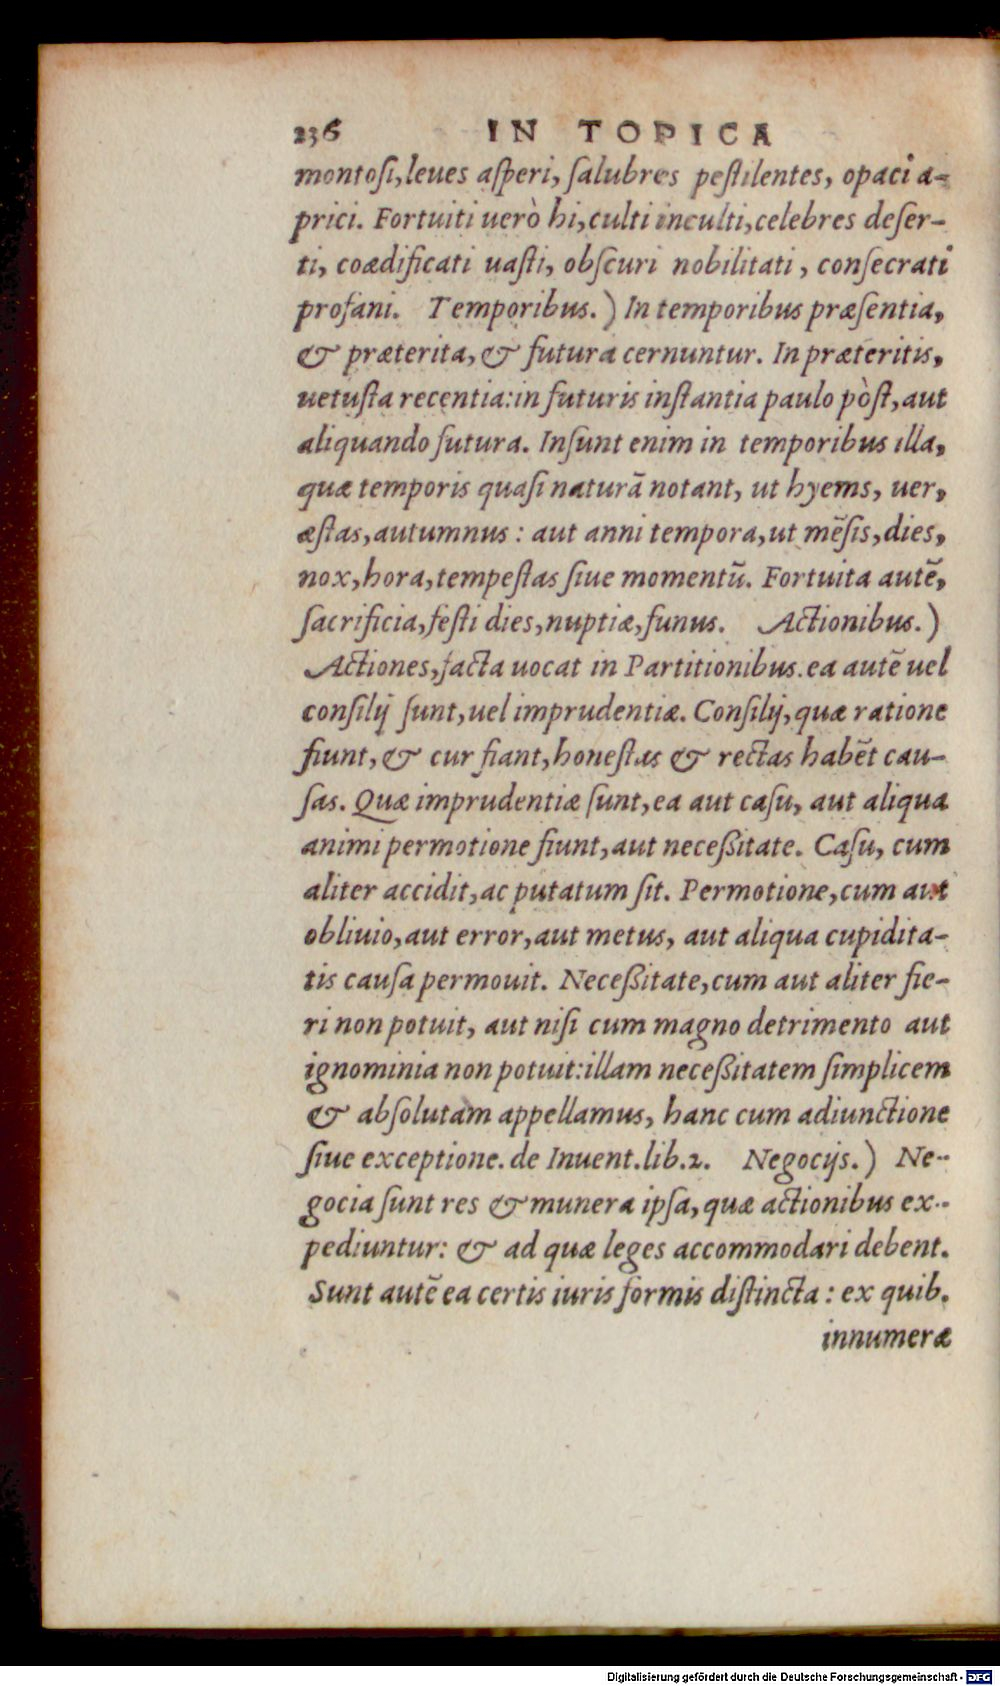 236 IN TOPICA
montoſi, leues aſperi, ſalubres peſtilentes, opaci a-
prici. Fortuiti uerò hi, culti inculti, celebres deſer-
ti, coædificati uaſti, obſcuri nobilitati, conſecrati
profani. Temporibus.) In temporibus præſentia,
& præterita, & futura cernuntur. In præteritis,
uetuſta recentia: in futuris inſtantia paulo pòſt, aut
aliquando futura. Inſunt enim in temporibus illa,
quæ temporis quaſi naturā notant, ut hyems, uer,
æſtas, autumnus: aut anni tempora, ut mēſis, dies,
nox, hora, tempeſtas ſiue momentū. Fortuita autē,
ſacrificia, feſti dies, nuptiæ, funus. Actionibus.)
Actiones, facta uocat in Partitionibus. ea autē uel
conſilij ſunt, uel imprudentiæ. Conſilij, quæ ratione
fiunt, & cur fiant, honeſtas & rectas habēt cau-
ſas. Quæ imprudentiæ ſunt, ea aut caſu, aut aliqua
animi permotione fiunt, aut neceßitate. Caſu, cum
aliter accidit, ac putatum ſit. Permotione, cum aut
obliuio, aut error, aut metus, aut aliqua cupidita-
tis cauſa permouit. Neceßitate, cum aut aliter fie-
ri non potuit, aut niſi cum magno detrimento aut
ignominia non potuit: illam neceßitatem ſimplicem
& abſolutam appellamus, hanc cum adiunctione
ſiue exceptione. de Inuent. lib. 2. Negocijs.) Ne-
gocia ſunt res & munera ipſa, quæ actionibus ex-
pediuntur: & ad quæ leges accommodari debent.
Sunt autē ea certis iuris formis diſtincta: ex quib.
innumeræ
Digitalisierung gefördert durch die Deutsche Forschungsgemeinschaft - DFG